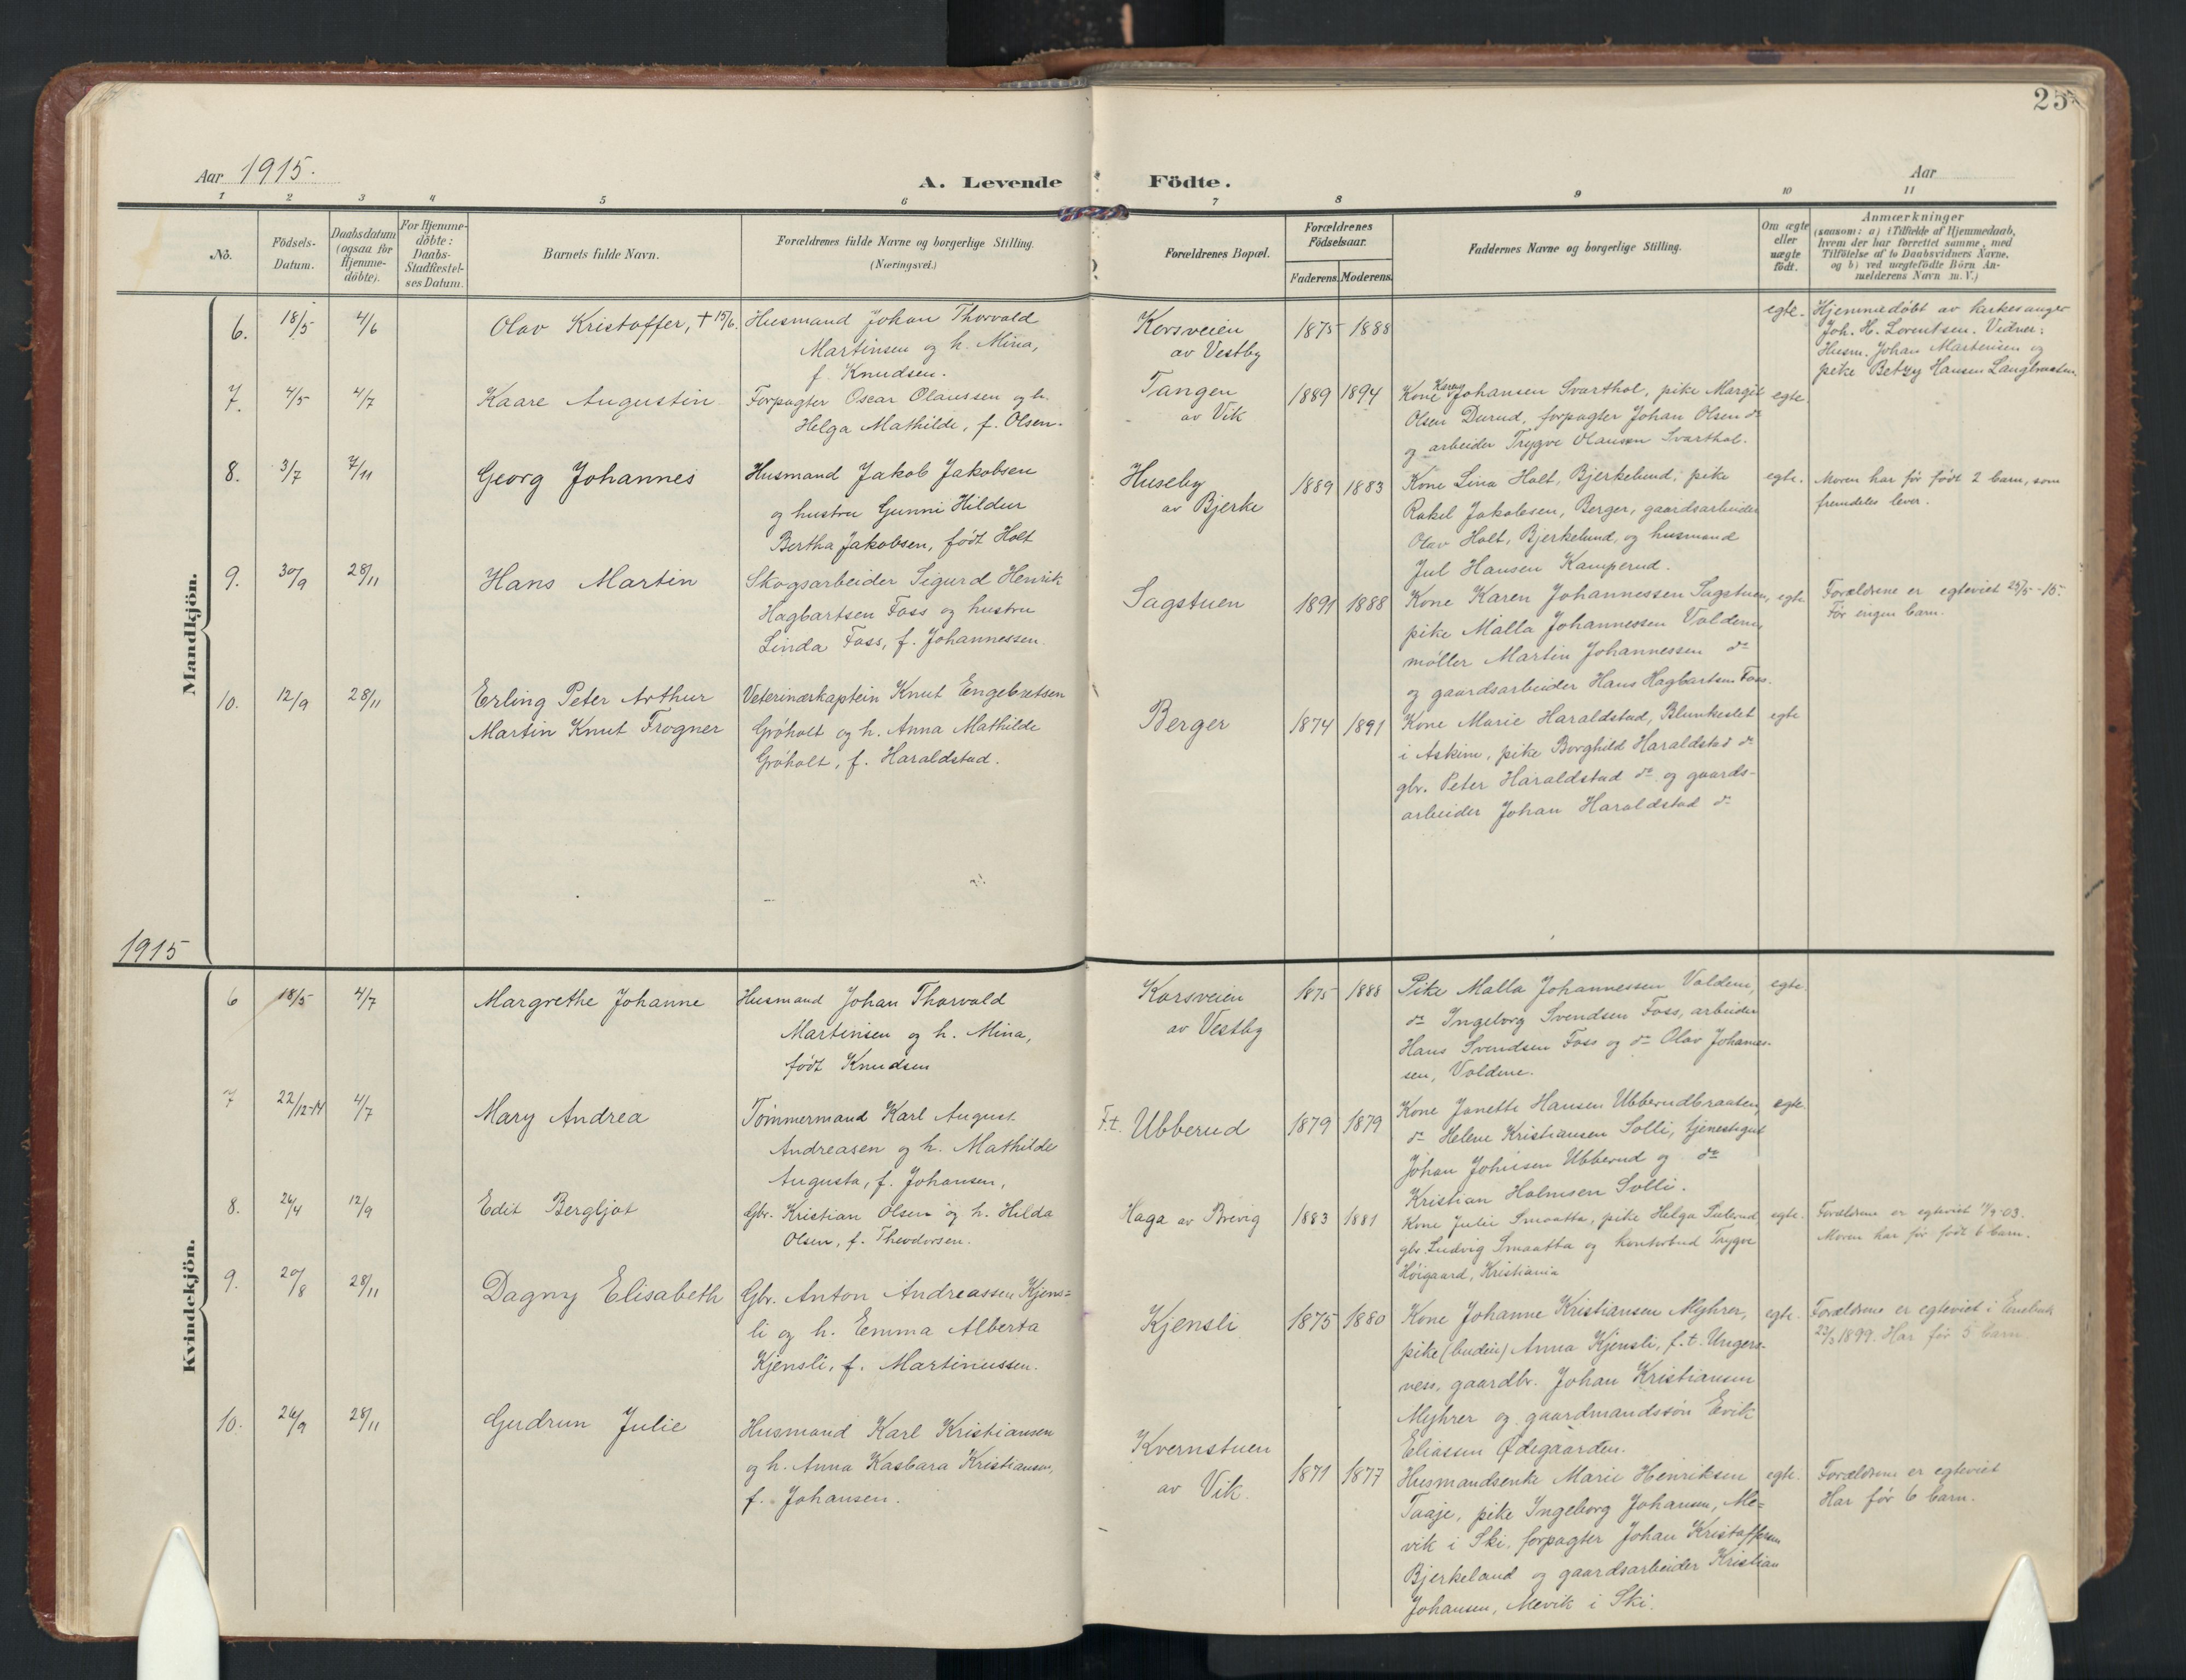 25
Aar 1915.
A. Levende Födte.
Aar
1 2 3 4 5 6 7 8 9 10 11
No.
Födsels-
Datum.
Daabsdatum
(ogsaa for
Hjemme-
döbte).
For Hjemme-
döbte:
Daabs-
Stadfæstel-
ses Datum.
Barnets fulde Navn.
Forældrenes fulde Navne og borgerlige Stilling.
(Næringsvei.)
Forældrenes Bopæl.
Forældrenes
Födselsaar.
Faderens. Moderens.
Faddernes Navne og borgerlige Stilling.
Om ægte
eller
uægte
födt.
Anmærkninger
(saasom: a) i Tilfælde af Hjemmedaab,
hvem der har forrettet samme, med
Tilföielse af to Daabsvidners Navne,
og b) ved uægtefödte Börn An-
melderens Navn m. V.)
Mandkjön.
6. 18/5 4/6 Olav Kristoffer, + 15/6.
Husmand Johan Thorvald
Martinsen og h. Mina,
f. Knudsen.
Korsveien
av Vestby
1875 1888
egte.
Hjemmedøbt av kirkesanger
Joh. H. Lorentsen. Vidner:
Husm. Johan Martinsen og
pike Betzy Hansen Langbraaten
7. 4/5 4/7 Kaare Augustin
Forpagter Oscar Olaussen og h.
Helga Mathilde, f. Olsen.
Tangen
av Vik
1889 1894
Kone Karen Johansen Svarthol, pike Margit
Olsen Durud, forpagter Johan Olsen do
og arbeider Trygve Olaussen Svarthol.
egte.
8. 3/7 7/11 Georg Johannes
Husmand Jakob Jakobsen
og hustru Gunni Hildur
Bertha Jakobsen, født Holt
Huseby
av Bjerke
1889 1883
Kone Lina Holt, Bjerkelund, pike
Rakel Jakobsen, Berger, gaardsarbeider
Olav Holt, Bjerkelund, og husmand
Jul Hansen Kamperud.
egte.
Moren har før født 2 barn, som
fremdeles lever.
9. 30/9 28/11 Hans Martin
Skogsarbeider Sigurd Henrik
Hagbartsen Foss og hustru
Linda Foss, f. Johannessen.
Sagstuen
1891 1888
Kone Karen Johannessen Sagstuen,
pike Malla Johannessen Voldene,
møller Martin Johannessen do
og gaardsarbeider Hans Hagbartsen Foss.
egte
Forældrene er egteviet 25/5-15.
Før ingen barn.
10. 12/9 28/11 Erling Peter Arthur
Martin Knut Frogner
Veterinærkaptein Knut Engebretsen
Grøholt og h. Anna Mathilde
Grøholt, f. Haraldstad.
Berger
1874 1891
Kone Marie Haraldstad, Blunkeslet
i Askim, pike Borghild Haraldstad do
gbr. Peter Haraldstad do og gaards-
arbeider Johan Haraldstad do
egte
1915
Kvindekjön.
6 18/5 4/7 Margrethe Johanne
Husmand Johan Thorvald
Martinsen og h. Mina,
født Knudsen
Korsveien
av Vestby
1875 1888
Pike Malla Johannessen Voldene,
do Ingeborg Svendsen Foss, arbeider
Hans Svendsen Foss og do Olav Johannes-
sen, Voldene.
egte.
7 22/12-14 4/7 Mary Andrea
Tømmermand Karl August
Andreasen og h. Mathilde
Augusta, f. Johansen,
F.t. Ubberud
1879 1879
Kone Janette Hansen Ubberudbraaten,
do Helene Kristiansen Solli, tjenestegut
Johan Johnsen Ubberud og do
Kristian Holmsen Solli.
egte.
8. 26/4 12/9 Edit Bergljot
Gbr. Kristian Olsen og h. Hilda
Olsen, f. Theodorsen.
Haga av Brevig
1883 1881
Kone Julie Smaatta, pike Helga
gbr. Ludvig Smaatta og kontorbud Trygve
Høigaard, Kristiania
egte.
Forældrene er egteviet 03.
Moren har før født 6 barn.
9. 20/8 28/11 Dagny Elisabeth
Gbr. Anton Andreassen Kjens=
li og h. Emma Alberta
Kjensli, f. Martinussen.
Kjensli
1875 1880
Kone Johanne Kristiansen Myhrer,
pike (budeie) Anna Kjensli, f.t. Ungers-
ness, gaardbr. Johan Kristiansen
Myhrer og gaardmandssøn Evik
Eliassen Ødegaarden.
egte.
Forældrene er egteviet i Enebak
1899. Har før 5 barn
10. 26/9 28/11 Gudrun Julie
Husmand Karl Kristiansen
og h. Anna Kasbara Kristiansen,
f. Johansen.
Kvernstuen
av Vik
1871 1877
Husmandsenke Marie Henriksen
Taaje, pike Ingeborg Johansen, Me=
vik i Ski, forpagter Johan Kristoffersen
Bjerkeland og gaardsarbeider Kristian
Johansen, Mevik i Ski.
egte.
Forældrene er egteviet
Har før 6 barn.